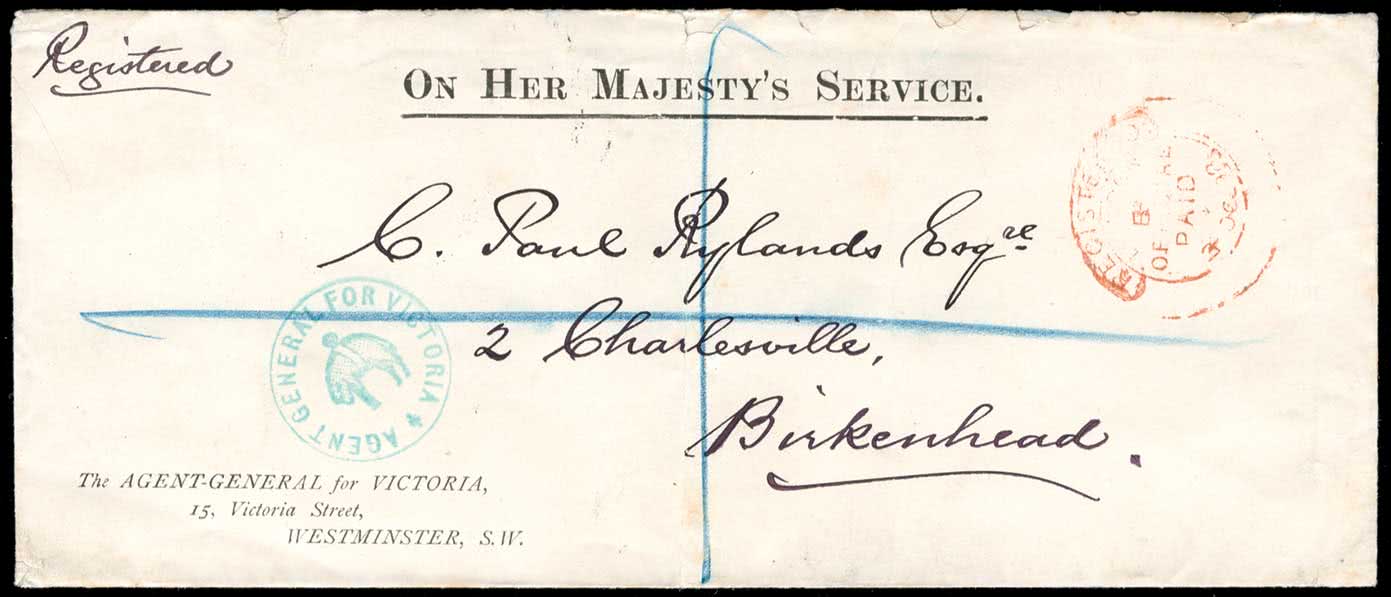 Registered
ON HER MAJESTY'S SERVICE.
C. Paul Rylands Esqre
2 Charlesville,
Birkenhead.
AGENT GENERAL FOR VICTORIA
REGISTERED
PAID
The AGENT-GENERAL for VICTORIA,
15, Victoria Street,
WESTMINSTER, S.W.